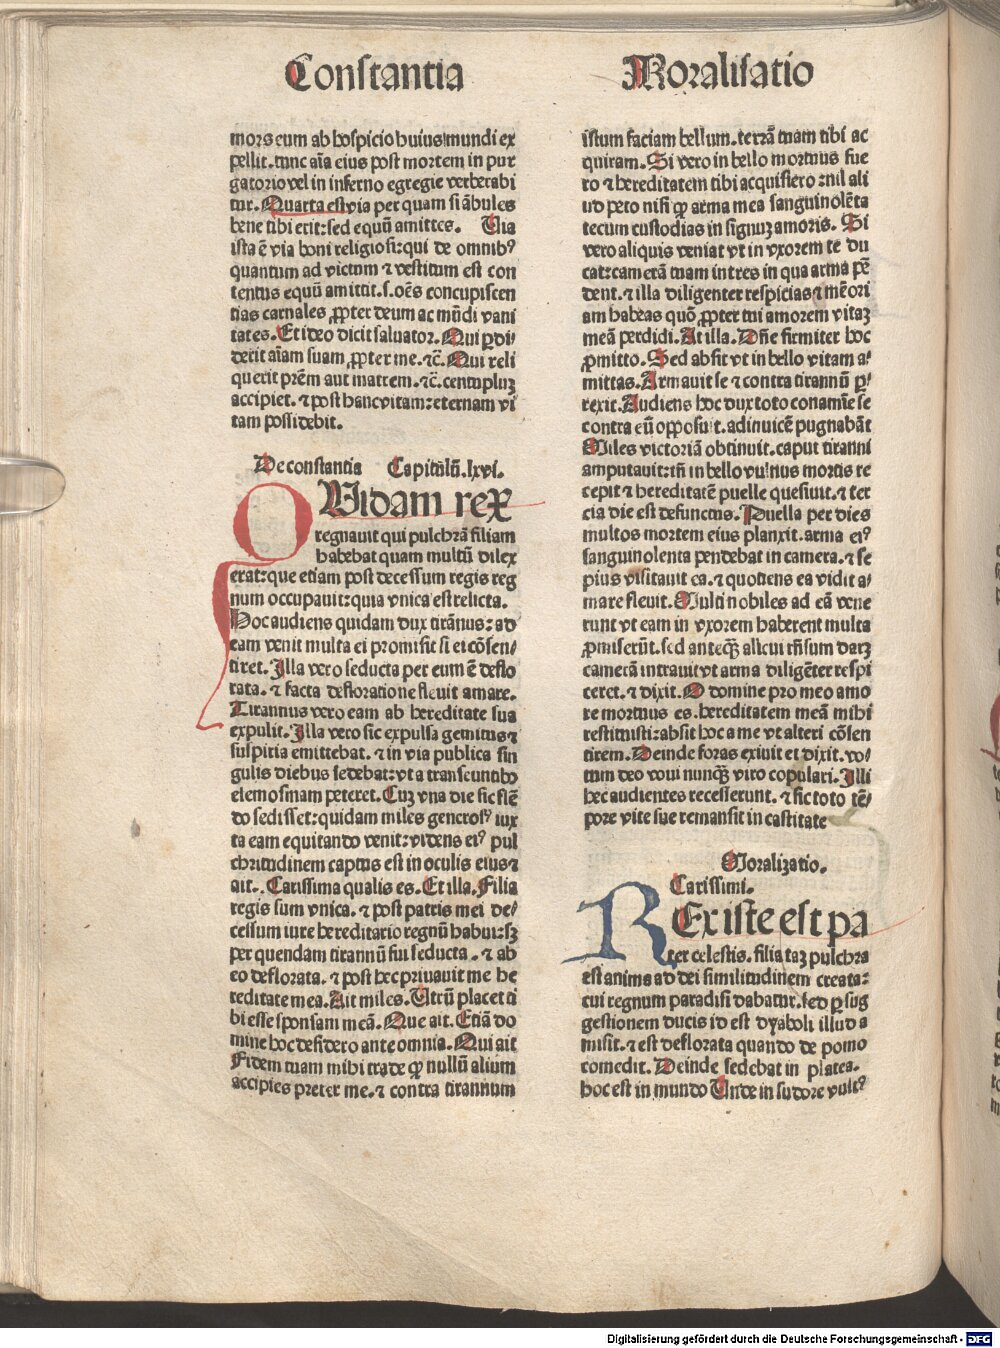 Constantia
mors eum ab hospicio huius mundi ex
pellit. tunc aīa eius post mortem in pur
gatorio vel in inferno egregie verberabi
tur. Quarta est via per quam si ābules
bene tibi erit: sed equū amittes. Uia
ista ē via boni religiosi: qui de omnibꝰ
quantum ad victum ⁊ vestitum est con
tentus equū amittit. s. oēs concupiscen
tias carnales ꝓpter deum ac mūdi vani
tates. Et ideo dicit saluator. Qui ꝑdi⸗
derit aīam suam ꝓpter me. ⁊c̄. Qui reli
querit prēm aut matrem. ⁊c̄. centupluꝫ
accipiet. ⁊ post hanc vitam: eternam vi
tam possidebit.
De constantia Capitulū. lxvi.
QUidam rex
regnauit qui pulchrā filiam
habebat quam multū dilex
erat: que etiam post decessum regis reg
num occupauit: quia vnica est relicta.
Hoc audiens quidam dux tirānus: ad
eam venit multa ei promisit si ei cōsen⸗
tiret. Illa vero seducta per eum ē deflo
rata. ⁊ facta defloratione fleuit amare.
Tirannus vero eam ab hereditate sua
expulit. Illa vero sic expulsa gemitus ⁊
suspiria emittebat. ⁊ in via publica sin
gulis diebus sedebat: vt a transeuntibꝰ
elemosinam peteret. Cuꝫ vna die sic flē
do sedisset: quidam miles generosꝰ iux
ta eam equitando venit: videns eiꝰ pul
chritudinem captus est in oculis eius ⁊
ait. Carissima qualis es. Et illa. Filia
regis sum vnica. ⁊ post patris mei de⸗
cessum iure hereditario regnū habui: sꝫ
per quendam tirannū fui seducta. ⁊ ab
eo deflorata. ⁊ post hec priuauit me he
reditate mea. Ait miles. Utrū placet ti
bi esse sponsam meā. Que ait. Etiā do
mine hoc desidero ante omnia. Qui ait
Fidem tuam mihi trade ꝙ nullū alium
accipies preter me. ⁊ contra tirannum
Moralisatio
istum faciam bellum. terrā tuam tibi ac
quiram. Si vero in bello mortuus fue
ro ⁊ hereditatem tibi acquisiero: nil ali
ud peto nisi ꝙ arma mea sanguinolēta
tecum custodias in signuꝫ amoris. Si
vero aliquis veniat vt in vxorem te du
cat: camerā tuam intres in qua arma pē
dent. ⁊ illa diligenter respicias ⁊ mēori
am habeas quō ꝓpter tui amorem vitaꝫ
meā perdidi. At illa. Dn̄e firmiter hoc
ꝓmitto. Sed absit vt in bello vitam a⸗
mittas. Armauit se ⁊ contra tirannū ꝑ⸗
rexit. Audiens hoc dux toto conamīe se
contra eū opposuit. adinuicē pugnabāt
Miles victoriā obtinuit. caput tiranni
amputauit: tn̄ in bello vulnus mortis re
cepit ⁊ hereditatē puelle quesiuit. ⁊ ter
cia die est defunctus. Puella per dies
multos mortem eius planxit. arma eiꝰ
sanguinolenta pendebat in camera. ⁊ se
pius visitauit ea. ⁊ quotiens ea vidit a⸗
mare fleuit. Multi nobiles ad eā vene
runt vt eam in vxorem haberent multa
ꝓmiserūt. sed anteqꝫ̄ alicui rn̄sum daꝫ
camerā intrauit vt arma diligēter respi
ceret. ⁊ dixit. O domine pro meo amo
re mortuus es. hereditatem meā mihi
restituisti: absit hoc a me vt alteri cōsen
tirem. Deinde foras exiuit et dixit. vo⸗
tum deo voui nunqꝫ̄ viro copulari. Illi
hec audientes recesserunt. ⁊ sic toto tē⸗
pore vite sue remansit in castitate
Moralizatio.
Carissimi.
REx iste est pa
ter celestis. filia taꝫ pulchra
est anima ad dei similitudinem creata:
cui regnum paradisi dabatur. sed ꝑ sug
gestionem ducis id est dyaboli illud a
misit. ⁊ est deflorata quando de pomo
comedit. Deinde sedebat in platea.
hoc est in mundo Unde in sudore vultꝰ
Digitalisierung gefördert durch die Deutsche Forschungsgemeinschaft - DFG